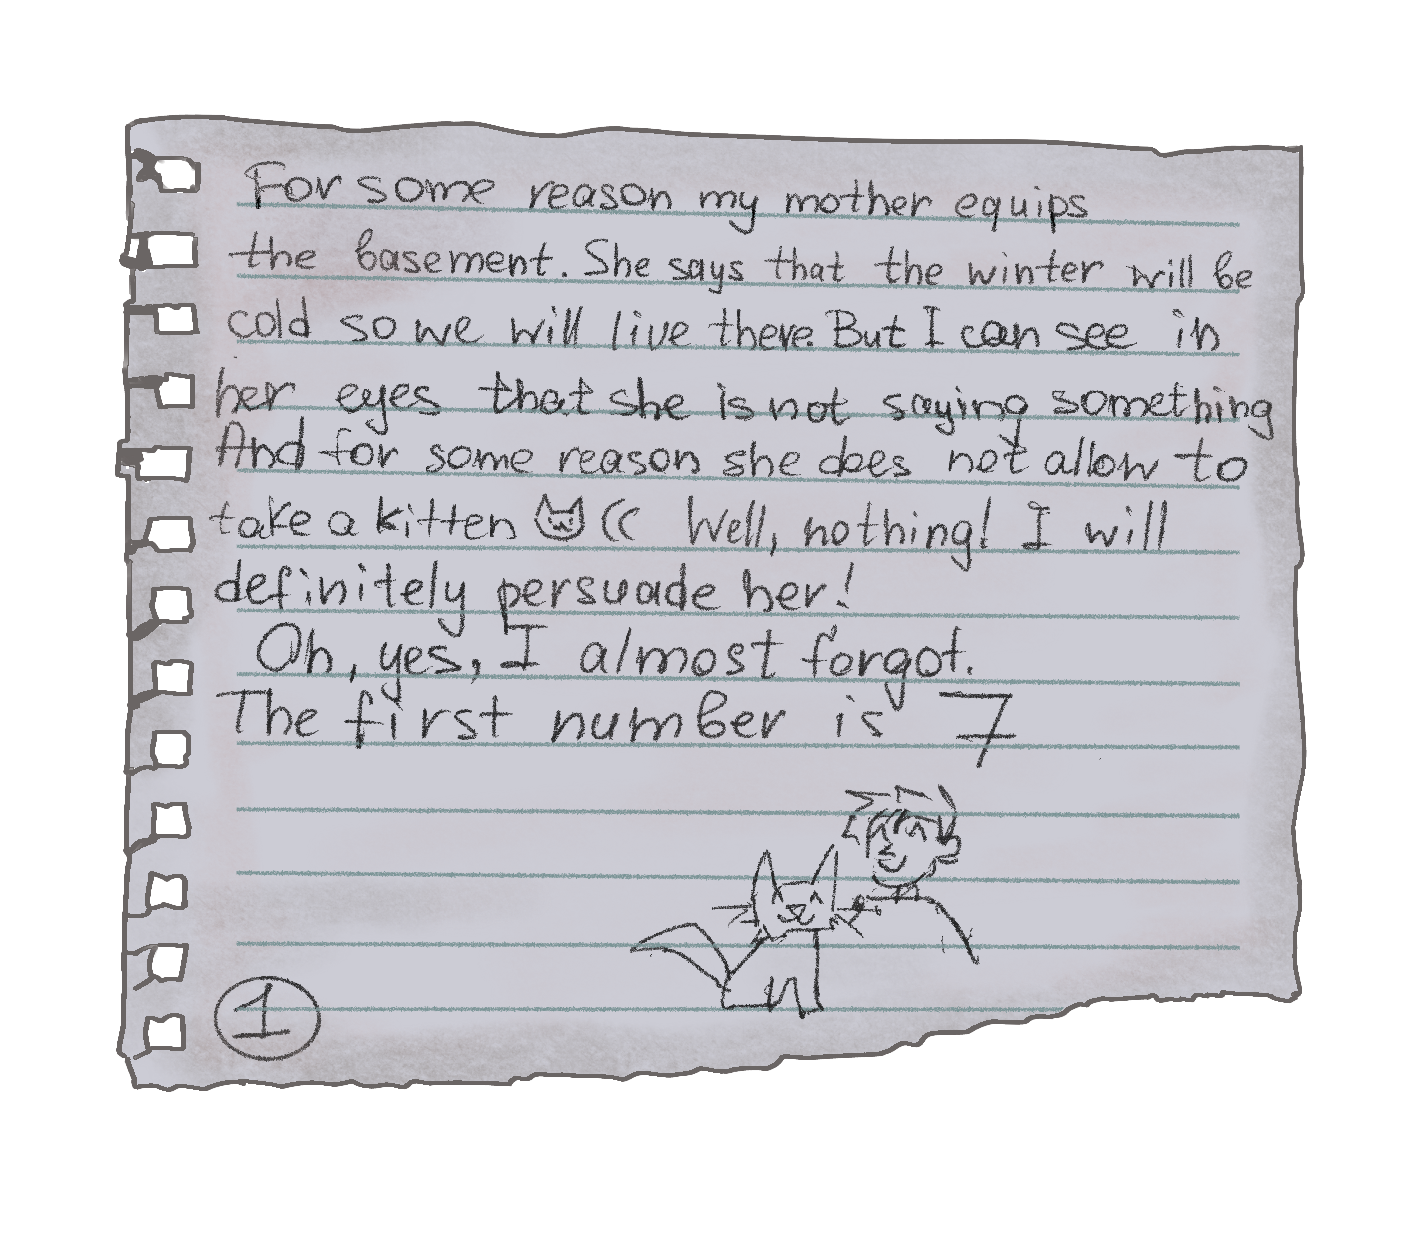 For some reason my mother equips
the basement. She says that the winter will be
cold so we will live there. But I can see in
her eyes that she is not saying something
And for some reason she does not allow to
take a kitten (( Well, nothing! I will
definitely persuade her!
Oh, yes, I almost forgot.
The first number is 7
1